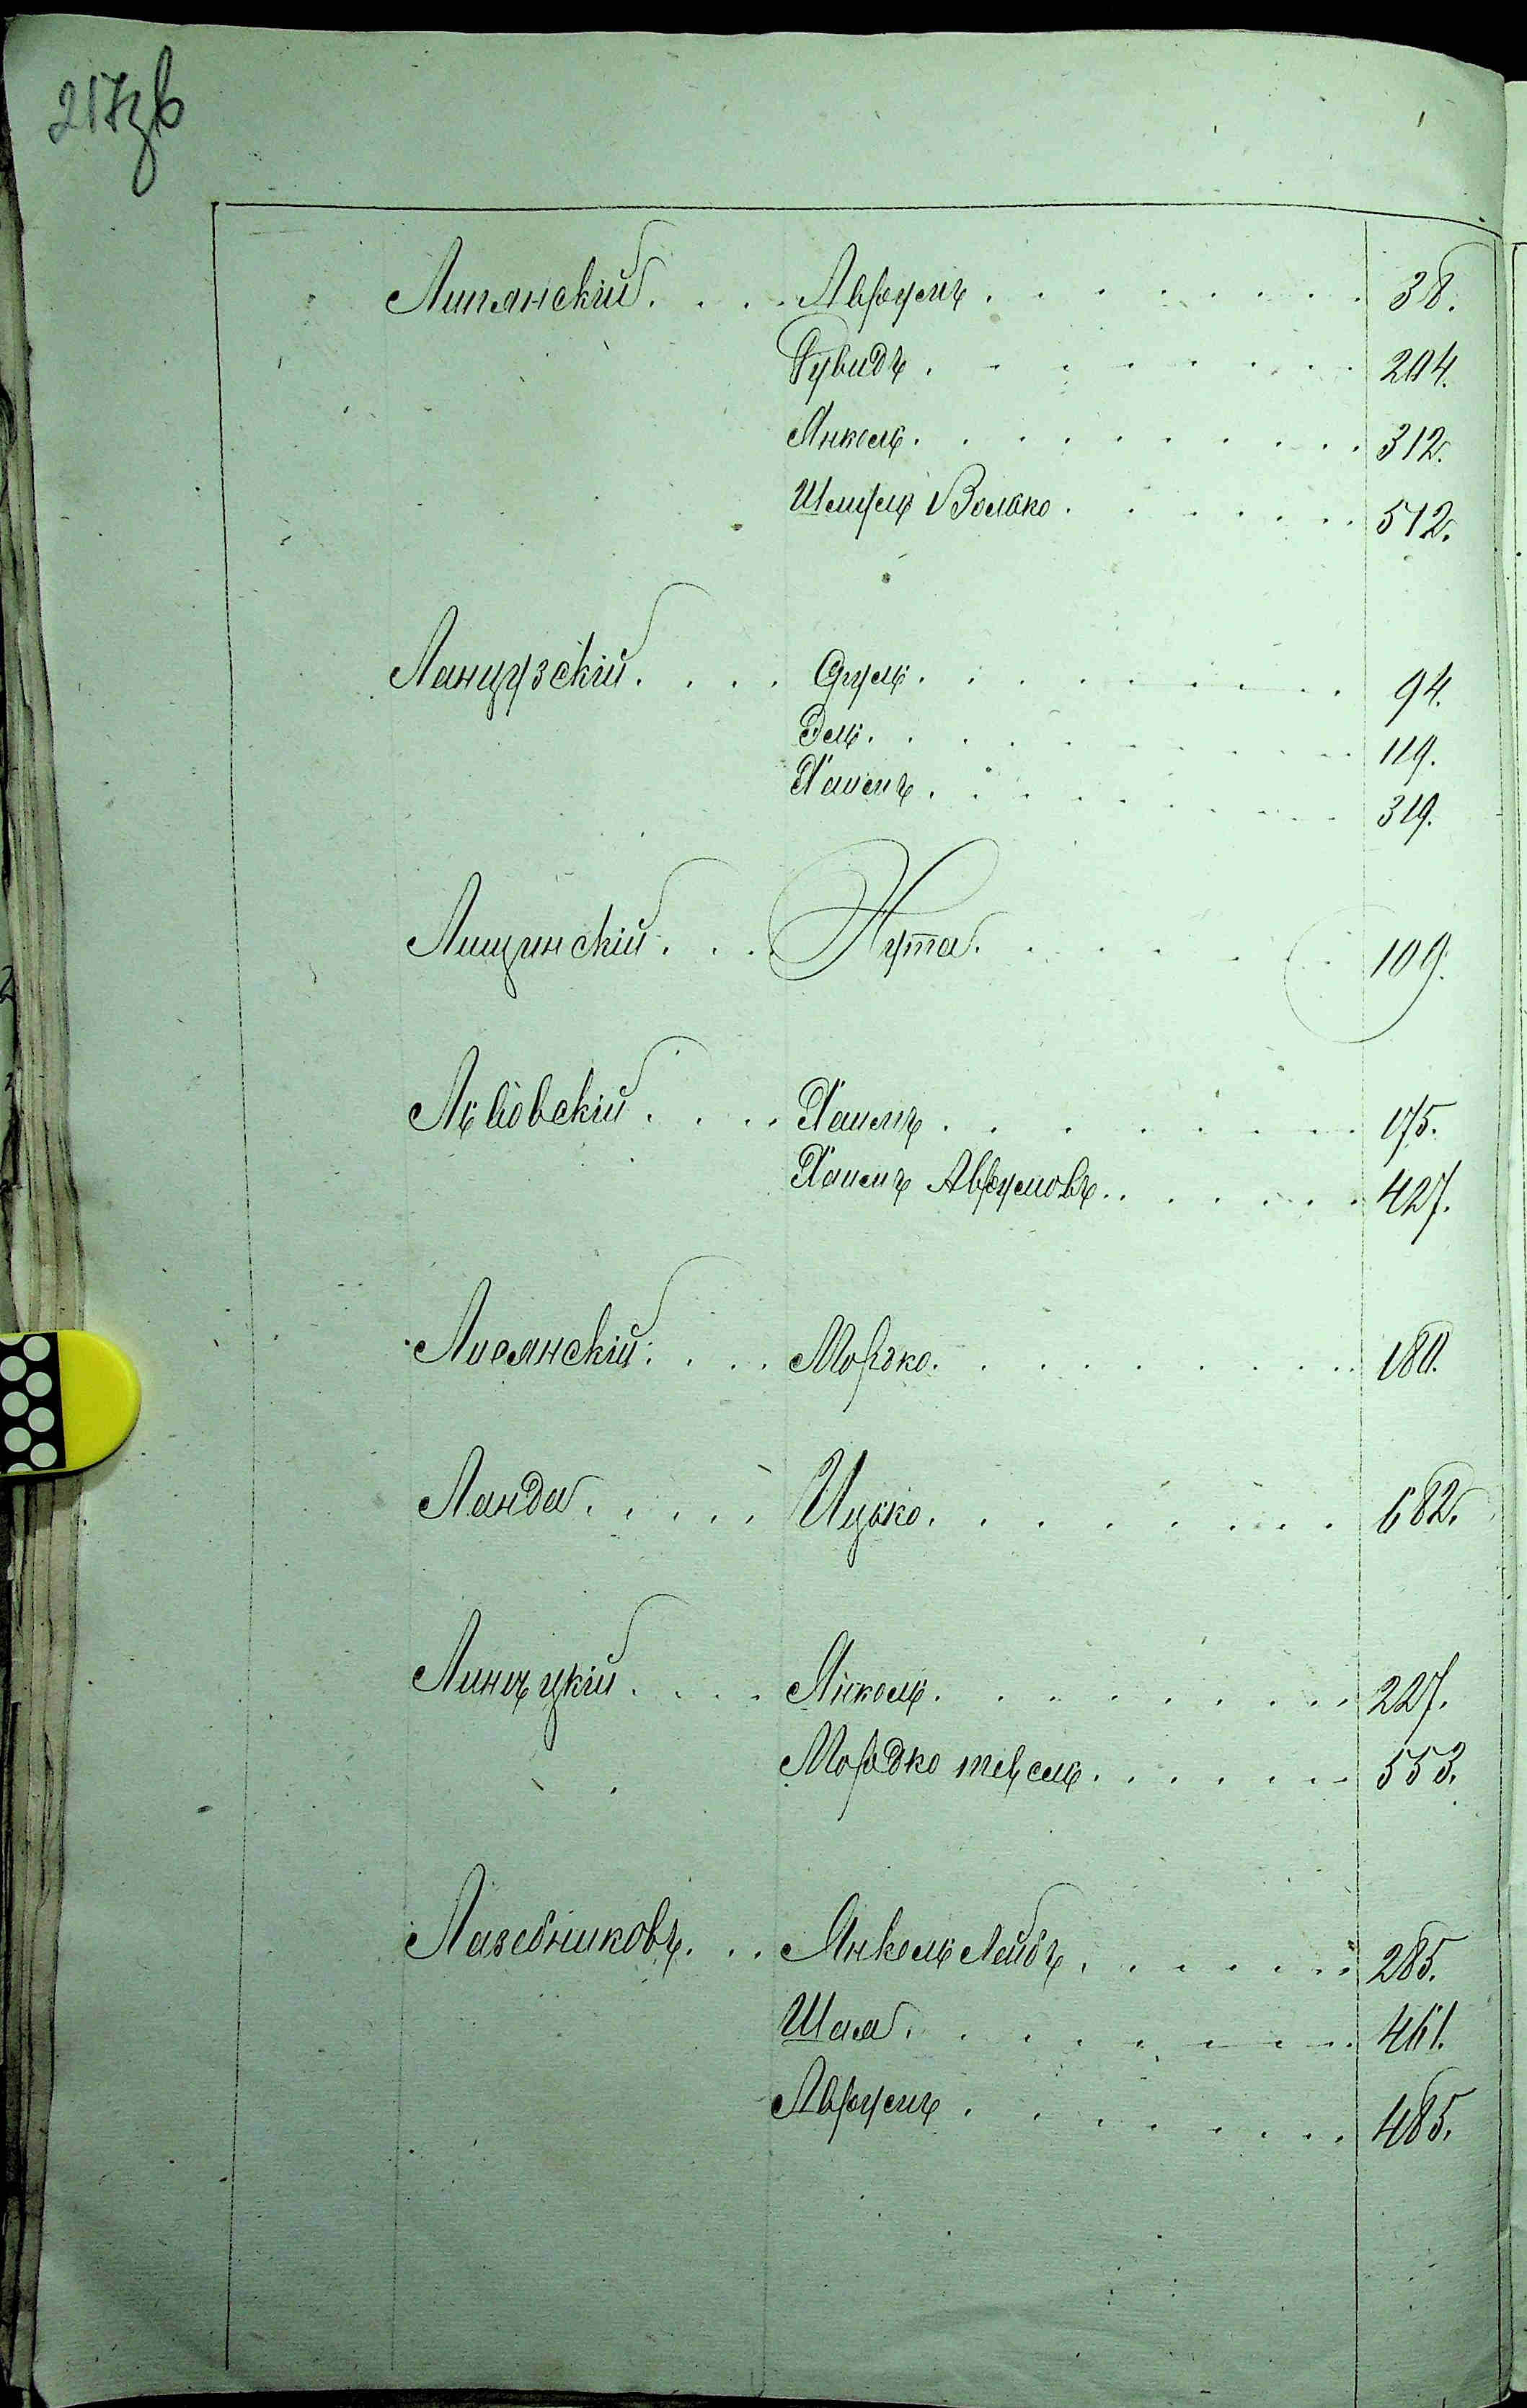 217зв
Липянскій . . . . Авrумъ . . . . . . . . 38.
Гувидъ . . . . . . . . 204.
Янкель . . . . . . . . . 312.
Шмуль Волько . . . . . . 512.
Ланцузскій . . . . Сруль . . . . . . . . 94.
Эль . . . . . . . . 119.
Хаимъ . . . . . . . . 319.
Лищинскій . . . Нута . . . . . . . 109.
Львовскій . . . . Хаимъ . . . . . . . . 175.
Хаимъ Аврумовъ . . . . . . 427.
Лисянскій . . . . Мордко . . . . . . . . . 180.
Ланда . . . . . Ицько . . . . . . . . 682.
Линецкій . . . . Янкель . . . . . . . . 227.
Мордко тевель . . . . . . 553.
Лазебниковъ . . . Янкель Лейбъ . . . . . . 285.
Шая . . . . . . . . 461.
Аврумъ . . . . . . . . 485.